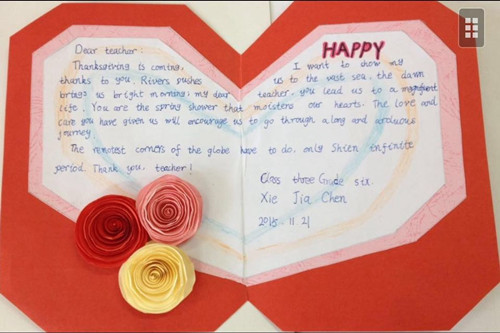 HAPPY
Dear teacher:
Thanksgiving is coming, I want to show my
thanks to you. Rivers pushes us to the vast sea, the dawn
brings us bright morning; my dear teacher, you lead us to a magnificent
life. You are the spring shower that moistens our hearts. The love and
care you have given us will encourage us to go through a long and arduous
journey.
The remotest corners of the globe have to do, only Shien infinite
period. Thank you, teacher!
Class three Grade six.
Xie Jia Chen
2015 11 21